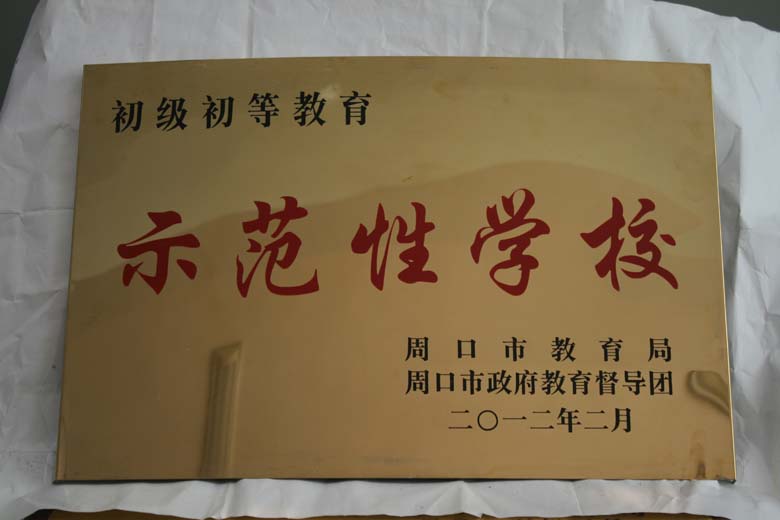 初级初等教育
示范性学校
周口市教育局
周口市政府教育督导团
二〇一二年二月